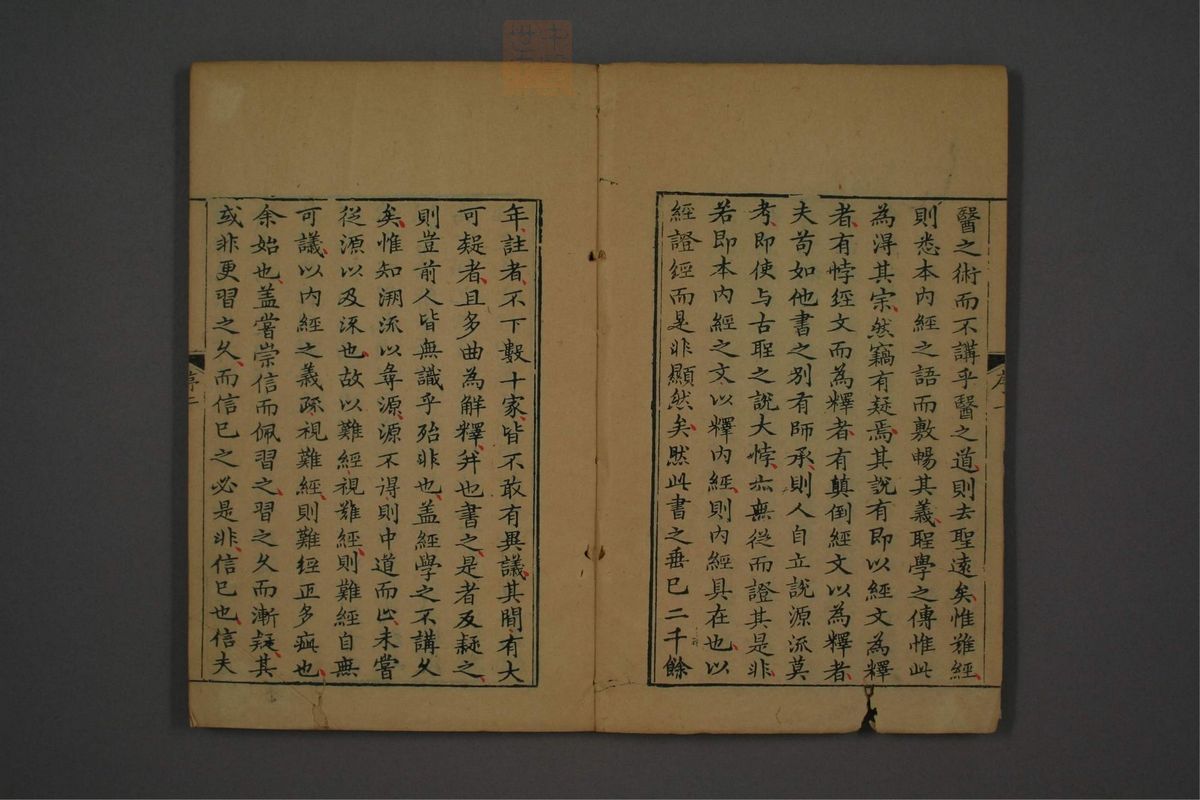 醫之術而不講乎醫之道則去聖遠矣惟難經
則悉本內經之語而敷暢其義聖學之傳惟此
為得其宗然竊有疑焉其說有即以經文為釋
者有悖經文而為釋者有顛倒經文以為釋者
夫苟如他書之別有師承則人自立說源流莫
考即使与古聖之說大悖亦無從而證其是非
若即本內經之文以釋內經則內經具在也以
經證經而是非顯然矣然此書之垂已二千餘
年註者不下數十家皆不敢有異議其間有大
可疑者且多曲為解釋并也書之是者及疑之
則豈前人皆無識乎殆非也盖經學之不講久
矣惟知溯流以尋源源不得則中道而止未嘗
從源以及流也故以難經視難經則難經自無
可議以內經之義疏視難經則難經正多疵也
余始也盖嘗崇信而佩習之習之久而漸疑其
或非更習之久而信己之必是非信己也信夫
序一
序二